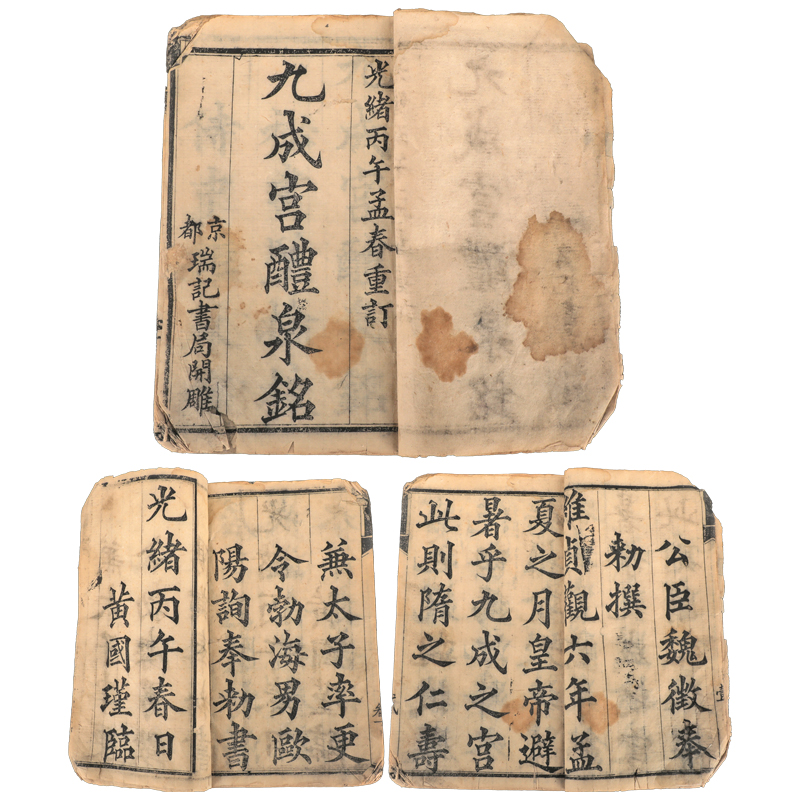 光緒丙午孟春重訂
九成宮醴泉銘
京都
瑞記書局開雕
公臣魏徵奉
勅撰
維貞觀六年孟
夏之月皇帝避
暑乎九成之宮
此則隋之仁壽
兼太子率更
令勃海男歐
陽詢奉勅書
光緒丙午春日
黃國瑾臨